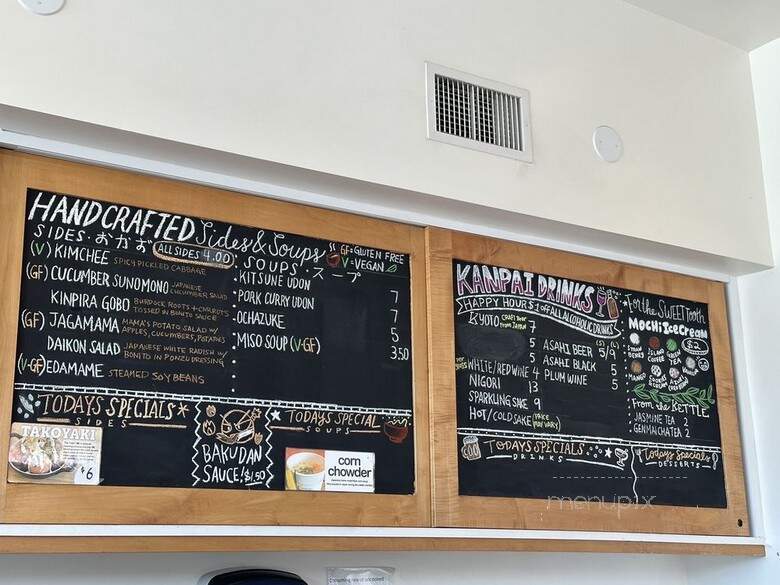 HANDCRAFTED Sides & Soups
GF = GLUTEN FREE
V = VEGAN
SIDES · おかず
ALL SIDES 4.00
(V) KIMCHEE SPICY PICKLED CABBAGE
(GF) CUCUMBER SUNOMONO JAPANESE CUCUMBER SALAD
KINPIRA GOBO BURDOCK ROOTS + CARROTS TOSSED IN BONITO SAUCE
(GF) JAGAMAMA MAMA'S POTATO SALAD W/ APPLES, CUCUMBERS, POTATOES
DAIKON SALAD JAPANESE WHITE RADISH W/ BONITO IN PONZU DRESSING
(V-GF) EDAMAME STEAMED SOY BEANS
SOUPS · スープ
KITSUNE UDON 7
PORK CURRY UDON 7
OCHAZUKE 5
MISO SOUP (V-GF) 3.50
TODAYS SPECIALS
SIDES
TAKOYAKI
$6
BAKUDAN
SAUCE! $1.50
TODAYS SPECIAL
SOUPS
corn
chowder
KANPAI DRINKS
HAPPY HOUR $1 OFF ALL ALCOHOLIC DRINKS
KYOTO CRAFT BEER FROM JAPAN 7
5
PER GLASS
WHITE/RED WINE 4
NIGORI 13
SPARKLING SAKE 9
HOT/COLD SAKE (PRICE MAY VARY)
(S) (L)
ASAHI BEER 5/9
ASAHI BLACK 5
PLUM WINE 5
For the SWEET Tooth
MOCHI ICE CREAM
$2
ISLAND COFFEE
GREEN TEA
MANGO
From the KETTLE
JASMINE TEA 2
GENMAICHA TEA 2
TODAYS SPECIALS
DRINKS
Todays Specials
DESSERTS
menupix